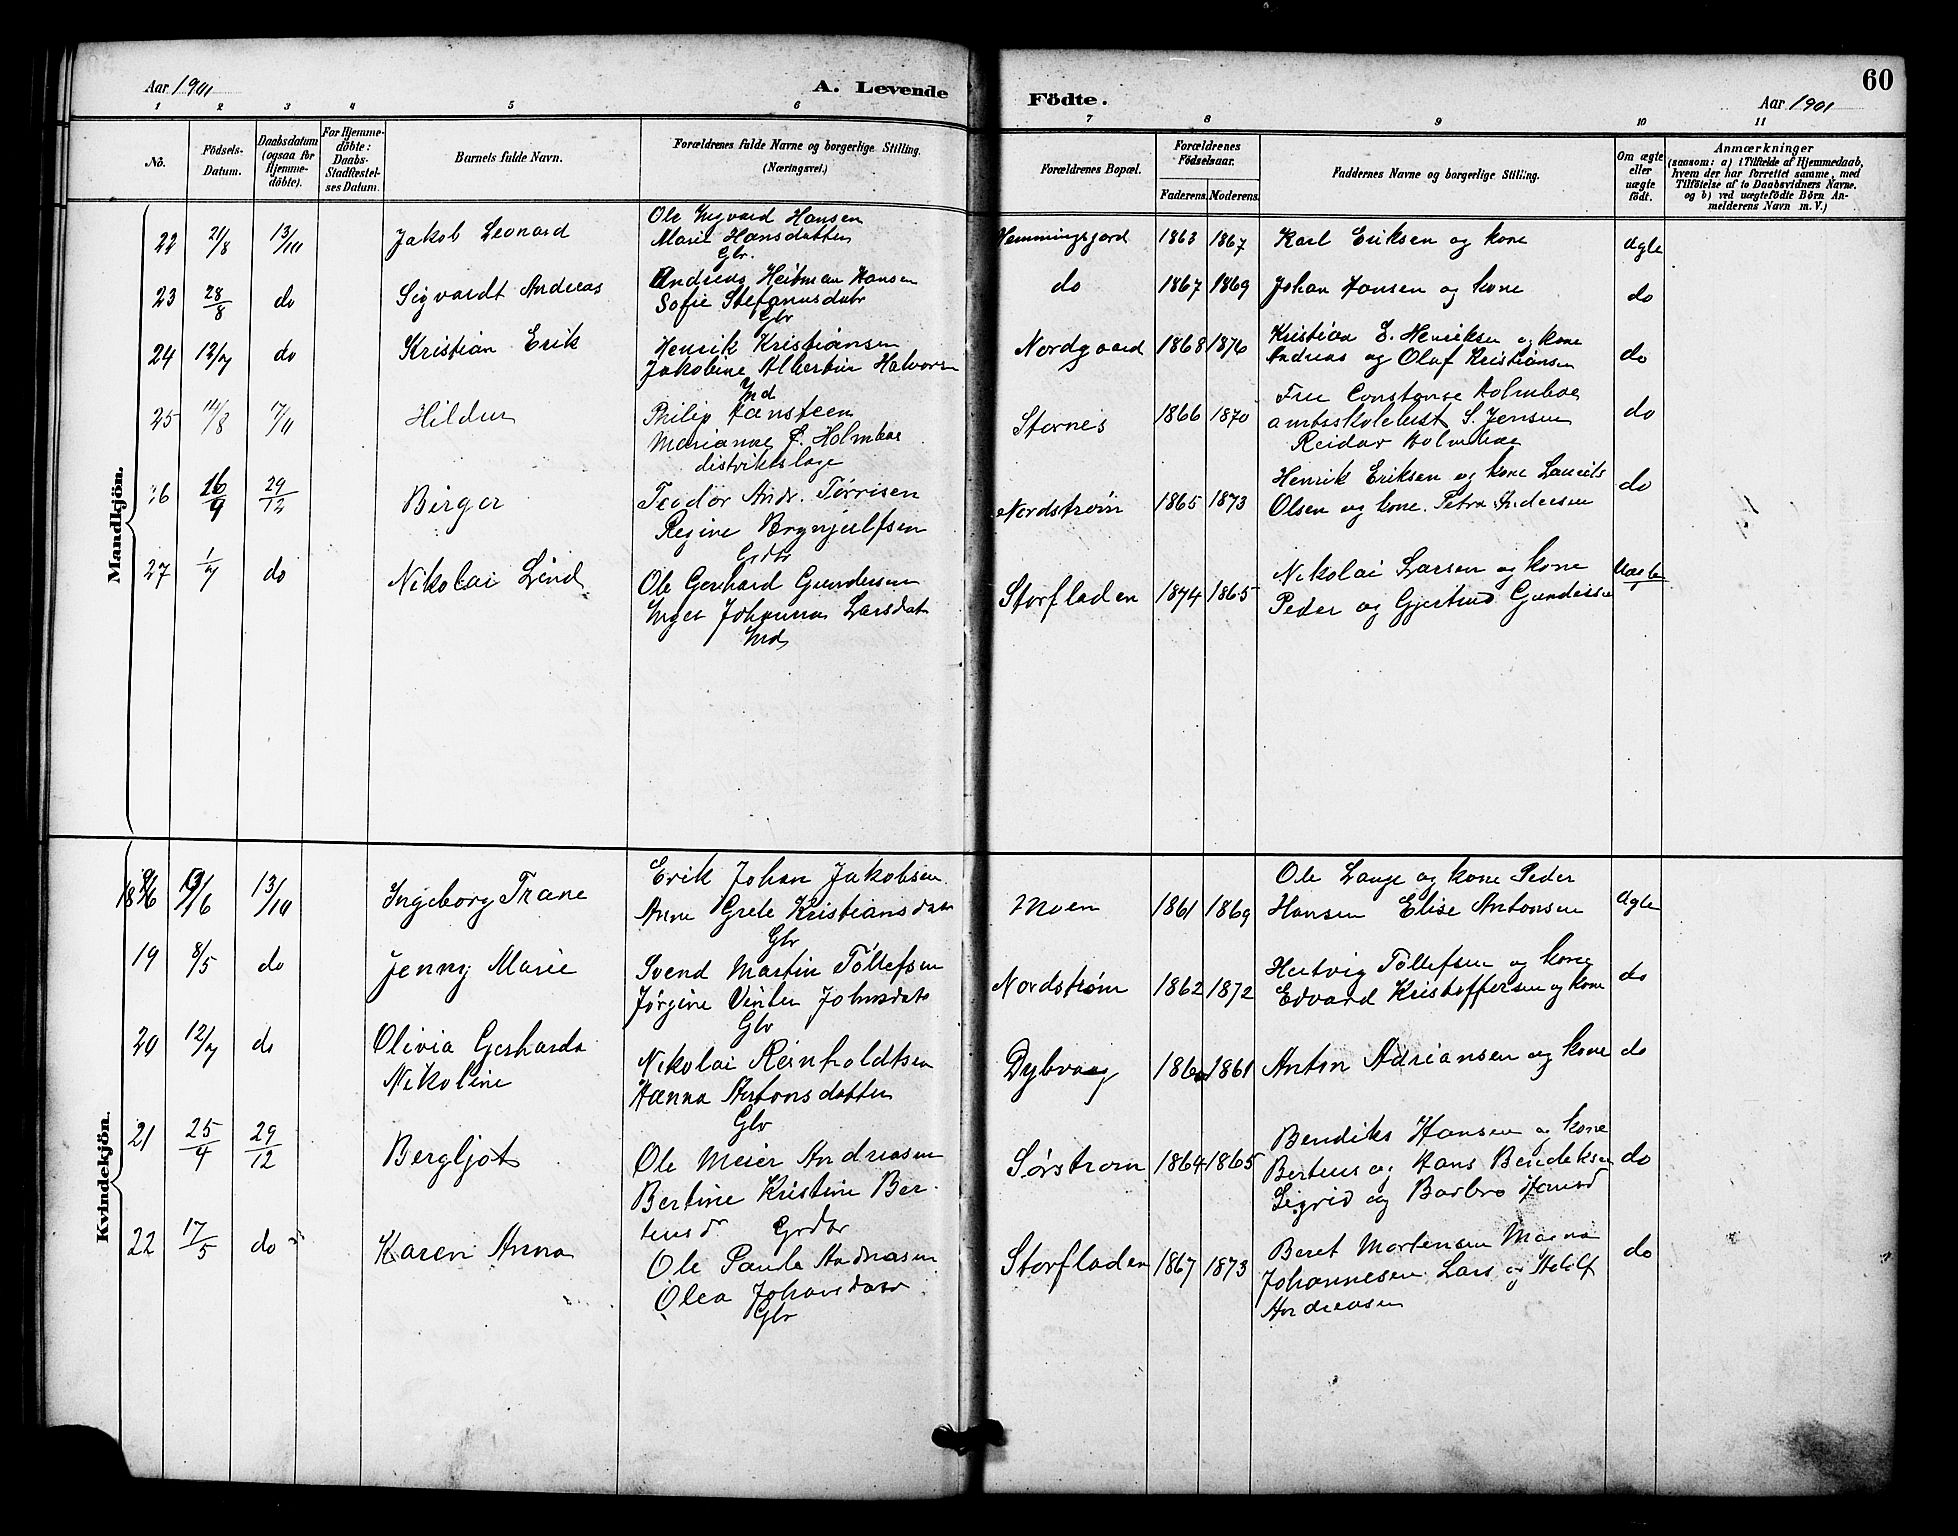 Aar 1901
A. Levende
Födte.
Aar 1901
60
1 2 3 4 5 6 7 8 9 10 11
No.
Födsels-
Datum.
Daabsdatum
(ogsaa for
Hjemme-
döbte).
For Hjemme-
döbte:
Daabs-
Stadfæstel-
ses Datum.
Barnets fulde Navn.
Forældrenes fulde Navne og borgerlige Stilling.
(Næringsvei.)
Forældrenes Bopæl.
Forældrenes
Födselsaar.
Faderens. Moderens.
Faddernes Navne og borgerlige Stilling.
Om ægte
eller
uægte
födt.
Anmærkninger
(saasom: a) i Tilfælde af Hjemmedaab,
hvem der har forrettet samme, med
Tilföielse af to Daabsvidners Navne.
og b) ved uægtefödte Börn An-
melderens Navn m. V.)
Mandkjön.
22 21/8 13/10 Jakob Leonard
Ole Ingvard Hansen
Marie Hansdatter
Gbr.
Hemmingsjord 1863 1867 Karl Eriksen og kone Ægte
23 28/8 do Sigvardt Andreas
Andreas Heitman Hansen
Sofie Stefanusdatr
Gbr
do 1867 1869 Johan Hansen og kone do
24 12/7 do Kristian Erik
Henrik Kristiansen
Jakobine Albertine Halvorsn
Ind
Nordgaard 1868 1876 Kristian E. Henriksen og kone
Andreas og Olaf Kristiansn do
25 14/8 17/11 Hildur
Philip Hansteen
Marianne F. Holmboe
distriktslæge
Stornes 1866 1870 Fru Constanse Holmboe
amtsskolebest. S. Jensen
Reidar Holmboe do
26 16/9 29/12 Birger
Teodor Andr. Törrisen
Regine Brynjulfsen
Grdbr
Nordstrøm 1865 1873 Henrik Eriksen og kone Laurits
Olsen og kone. Petra Andersen do
27 1/7 do Nikolai Lind
Ole Gerhard Gundersen
Inger Johanna Larsdat
Ind
Storfladen 1874 1865 Nikolai Larsen og kone
Peder og Gjertrud Gundersen Uægte
Kvindekjön.
18 19/6 13/10 Ingeborg Trane
Erik Johan Jakobsen
Anne Grete Kristiansdatr
Gbr
Moen 1861 1869 Ole Lange og kone Peder
Hansen Elise Antonsen Ægte
19 8/5 do Jenny Marie
Svend Martin Töllefsen
Jörgine Vinter Johnsdatr
Gbr
Nordstrøm 1862 1872 Hertvig Töllefsen og kone
Edvard Kristoffersen og kone do
20 12/7 do Olivia Gerharda
Nikoline
Nikolai Reinholdtsen
Hanna Antonsdatter
Gbr
Dybvaag 1860 1861 Anton Adriansen og kone do
21 25/9 29/12 Bergljot
Ole Meier Andreasen
Bertine Kristine Ber-
tensdr Grdbr
Sörstrøm 1864 1865 Bendiks Hansen og kone
Berteus og Hans Bendeksen
Sigrid og Barbro Hansd do
22 17/5 do Karen Anna
Ole Paula Andreasen
Olea Johansdatr
Gbr
Storfladen 1867 1873 Beret Mortensen Magna
Johannesen Lars og Adolf
Andreasen do